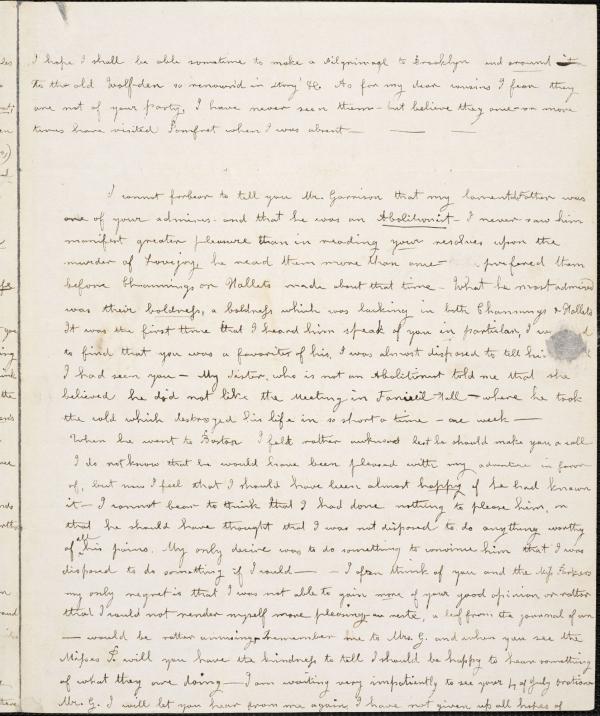 I hope I shall be able sometime to make a Pilgrimage to Brooklyn and around it
to the old Wolf-den so renown'd in story &c. As for my dear cousins I fear they
are not of your party, I have never seen them - but believe they one or more
times have visited Pomfret when I was absent -
I cannot forbear to tell you Mr. Garrison that my lamented Father was
one of your admirers. and that he was an Abolitionist - I never saw him
manifest greater pleasure than in reading your resolves upon the
murder of Lovejoy, he read them more than once prefered them
before Channings or Hallets made about that time - What he most admired
was their boldness, a boldness which was lacking in both Channings & Hallets
It was the first time that I heard him speak of you in particular, I
to find that you was a favorite of his, I was almost disposed to tell
I had seen you - My Sister, who is not an Abolitionist told me that she
believed he did not like the Meeting in Fanieul Hall - where he took
the cold which destroyed his life in so short a time - one week -
When he went to Boston I felt rather awkward lest he should make you a call
I do not know that he would have been pleased with my adventure in favor
of, but now I feel that I should have been almost happy if he had known
it - I cannot bear to think that I had done nothing to please him, or
that he should have thought that I was not disposed to do anything worthy
of all his pains. My only desire was to do something to convince him that I was
disposed to do something if I could - - I often think of you and the Miss Parkers
my only regret is that I was not able to gain more of your good opinion or rather
that I could not render myself more pleasing a leaf from the journal of an
- would be rather amusing, remember me to Mrs. G. and when you see the
Misses P. will you have the kindness to tell I should be happy to hear something
of what they are doing - I am waiting very impatiently to see your 4 of July oration
Mrs. G. I will let you hear from me again, I have not given up all hopes of